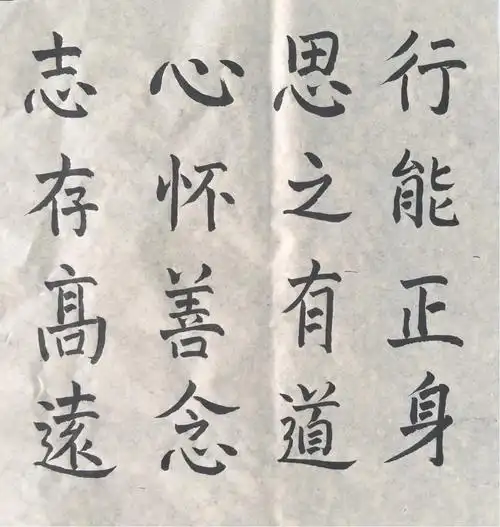 行能正身
思之有道
心怀善念
志存髙遠